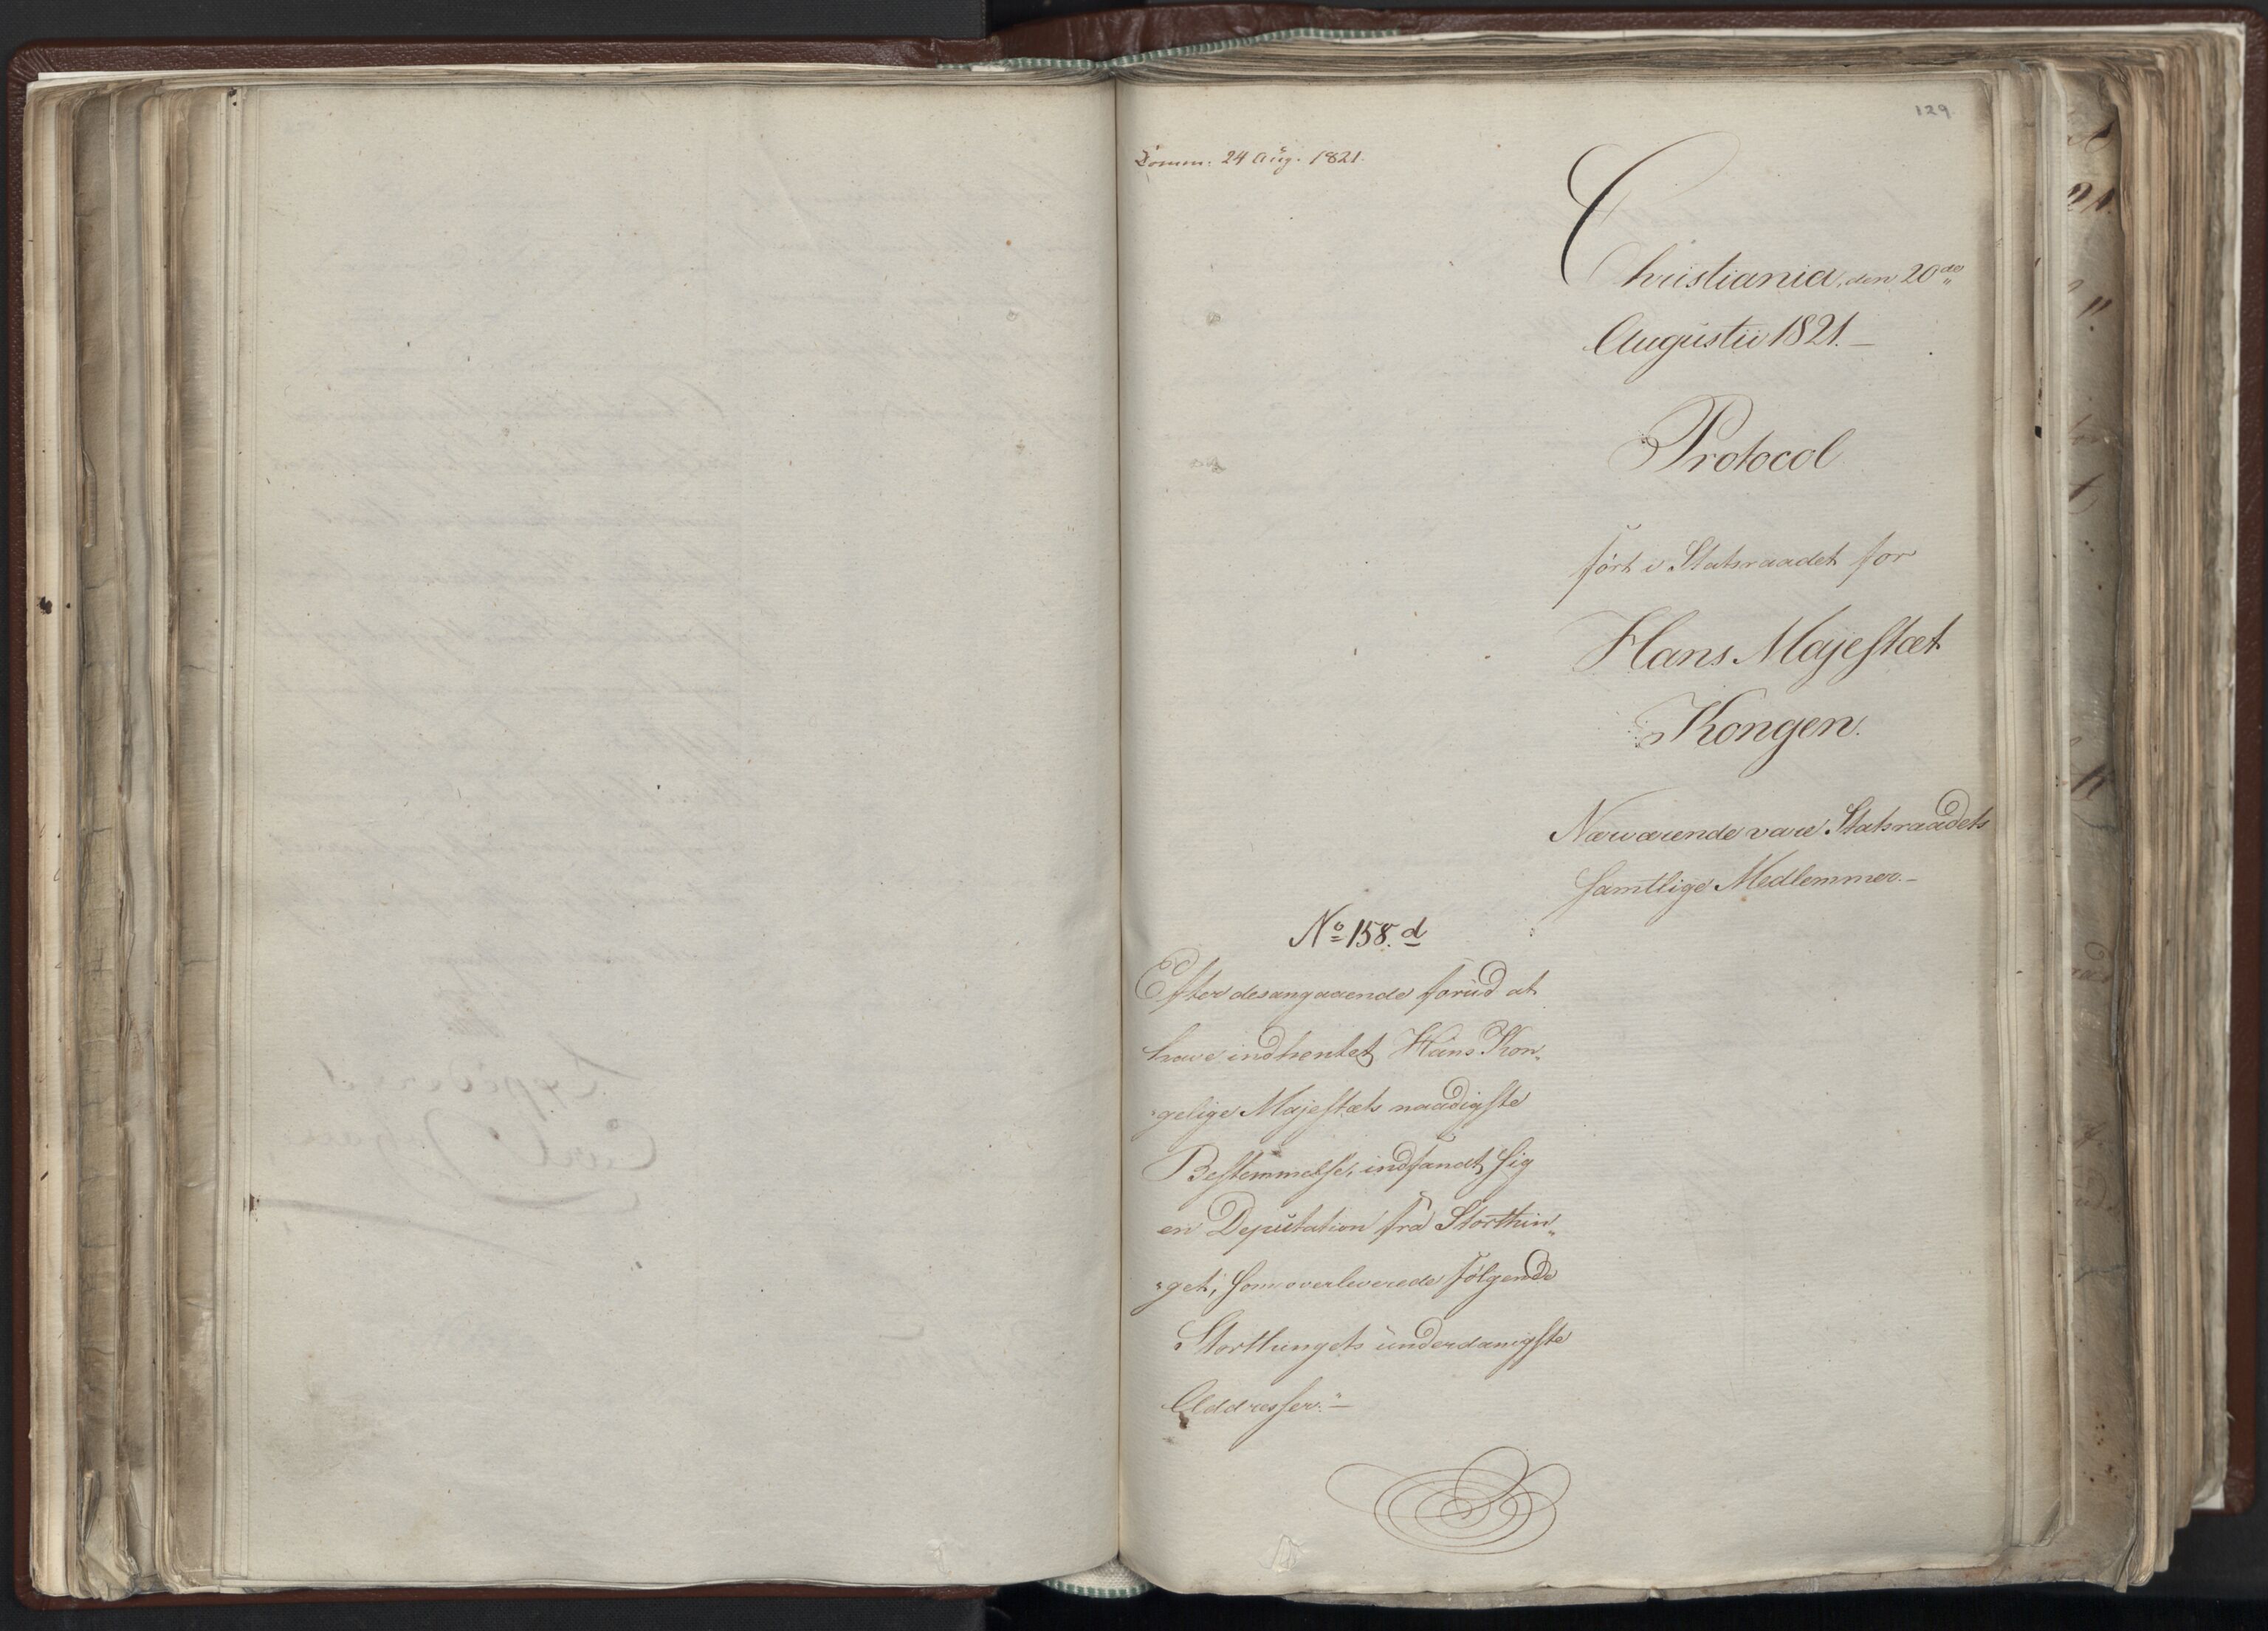 129
Comm: 24 Aug. 1821.
Christiania, den 20de
Augustii 1821.-
Protocol
ført i Statsraadet for
Hans Majestæt
Kongen.
Nærværende vare Statsraadets
samtlige Medlemmer.-
No 158. d
Efter desangaaende forud at
have indhentet Hans Kon-
gelige Majestæts naadigste
Bestemmelse, indfandt sig
en Deputation fra Storthin-
get, som overleverede følgende
Storthingets underdanigste
Addresser.-